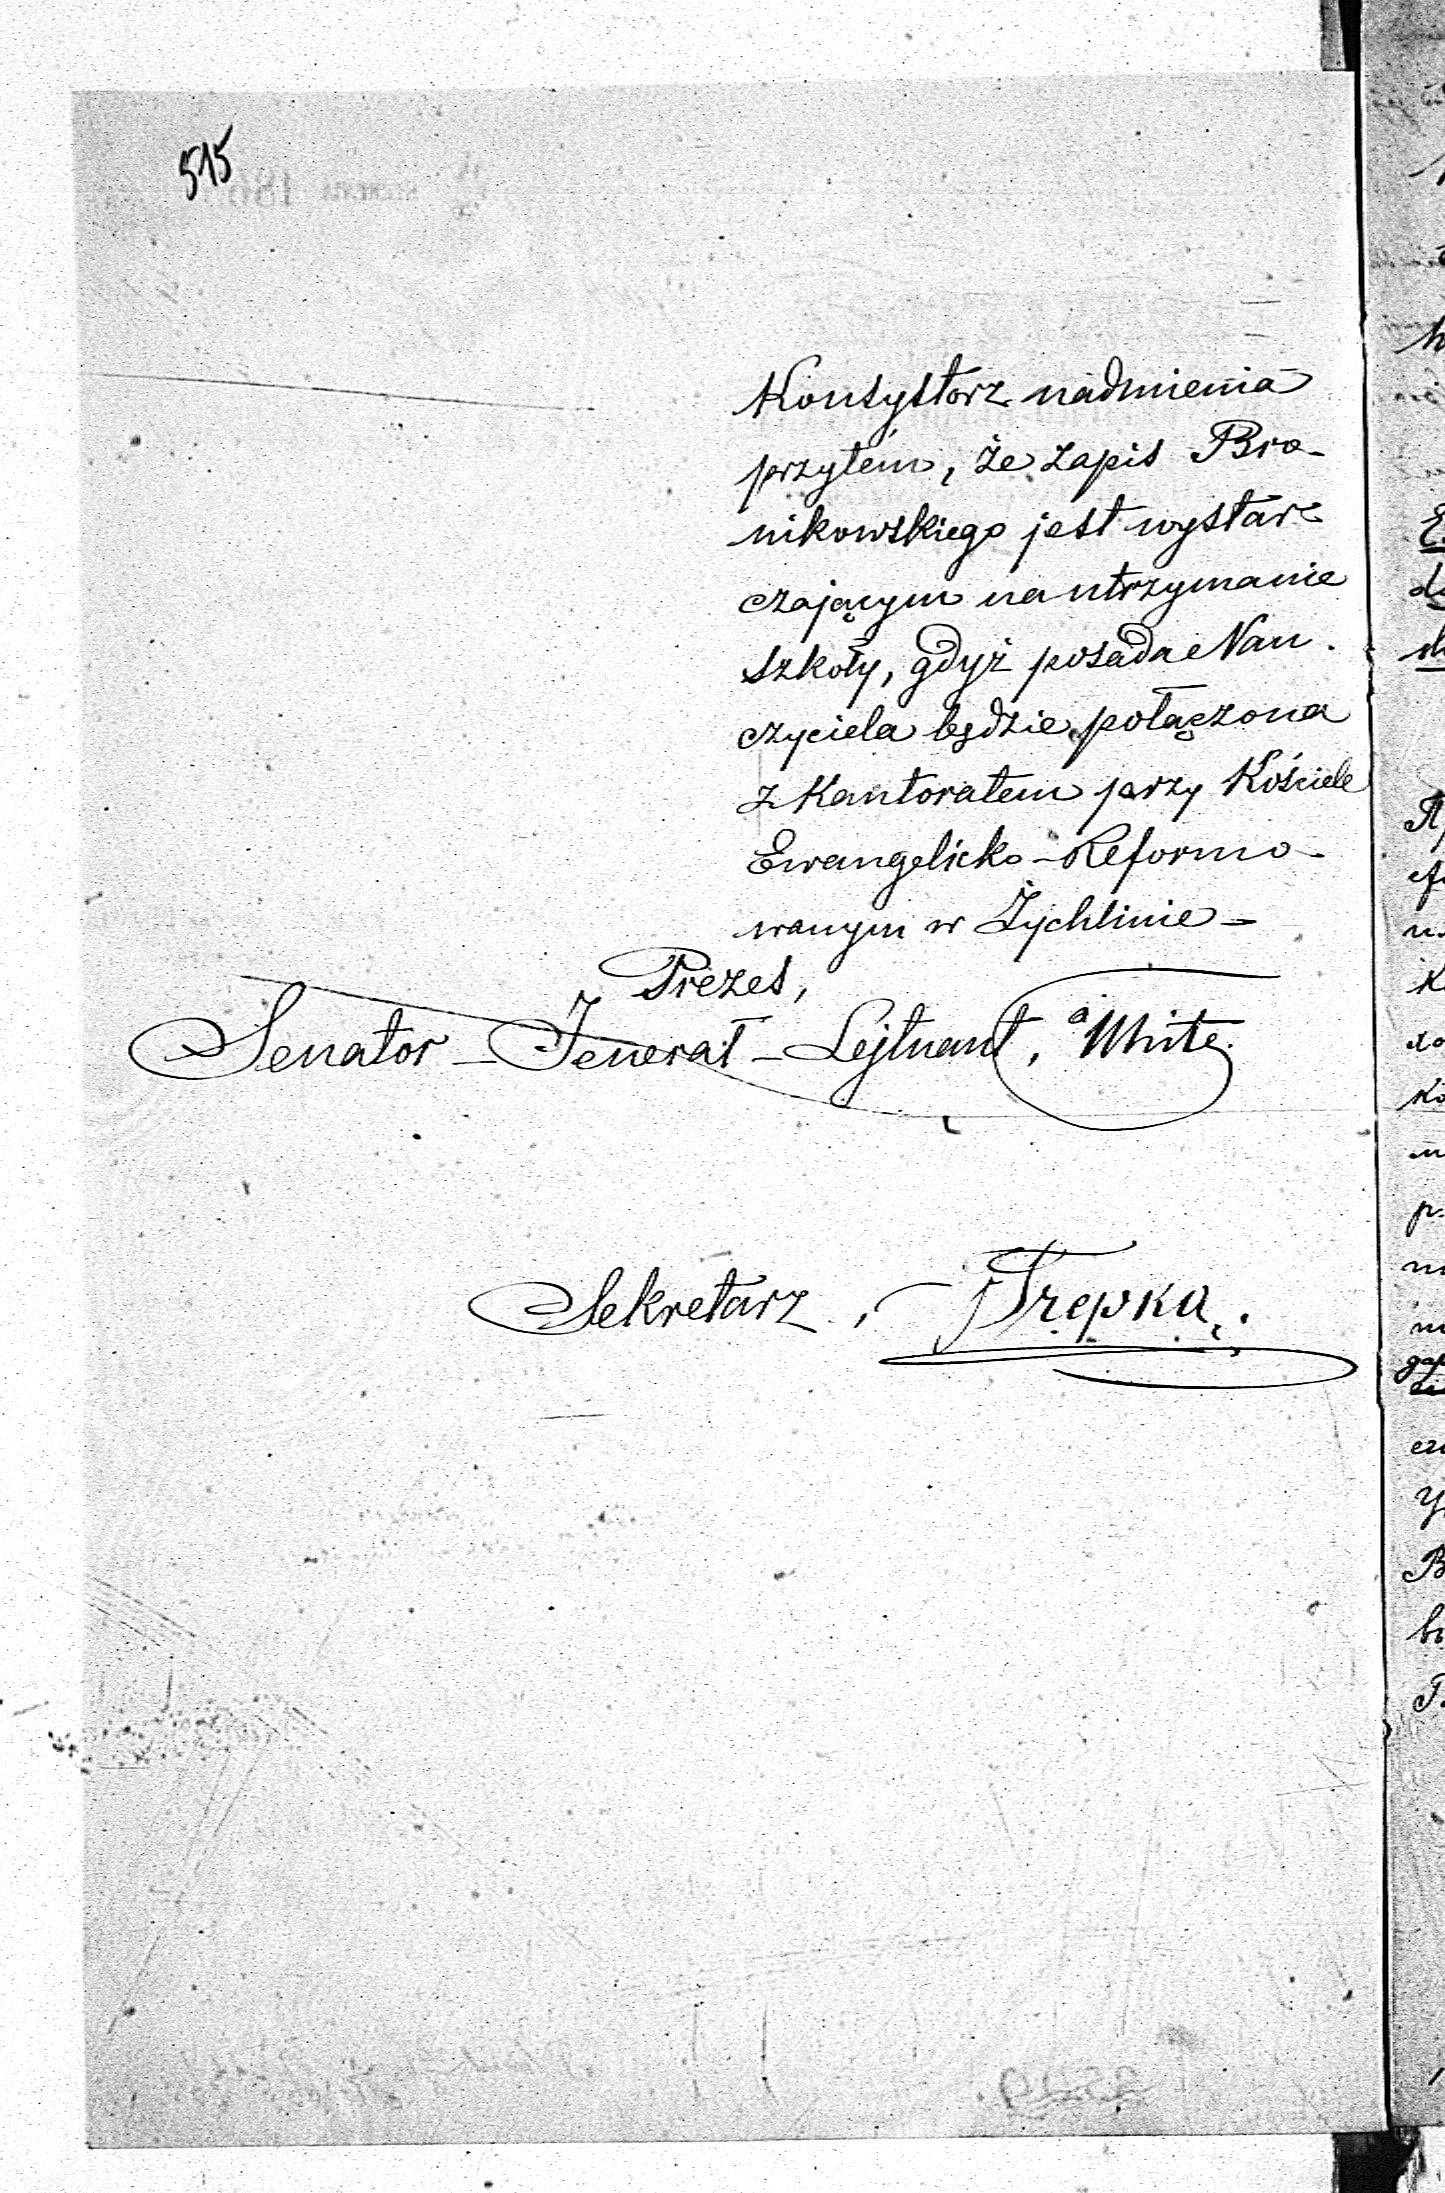 515
Konsystorz nadmienia
przytém, że zapis Bro-
nikowskiego jest wystar-
czającym na utrzymanie
szkoły, gdyż posada Nau-
czyciela będzie połączona
z Kantoratem przy Kościele
Ewangelicko-Reformo-
wanym w Żychlinie -
Prezes,
Senator - Jenerał - Lejtnant, a White.
Sekretarz, Trepka.